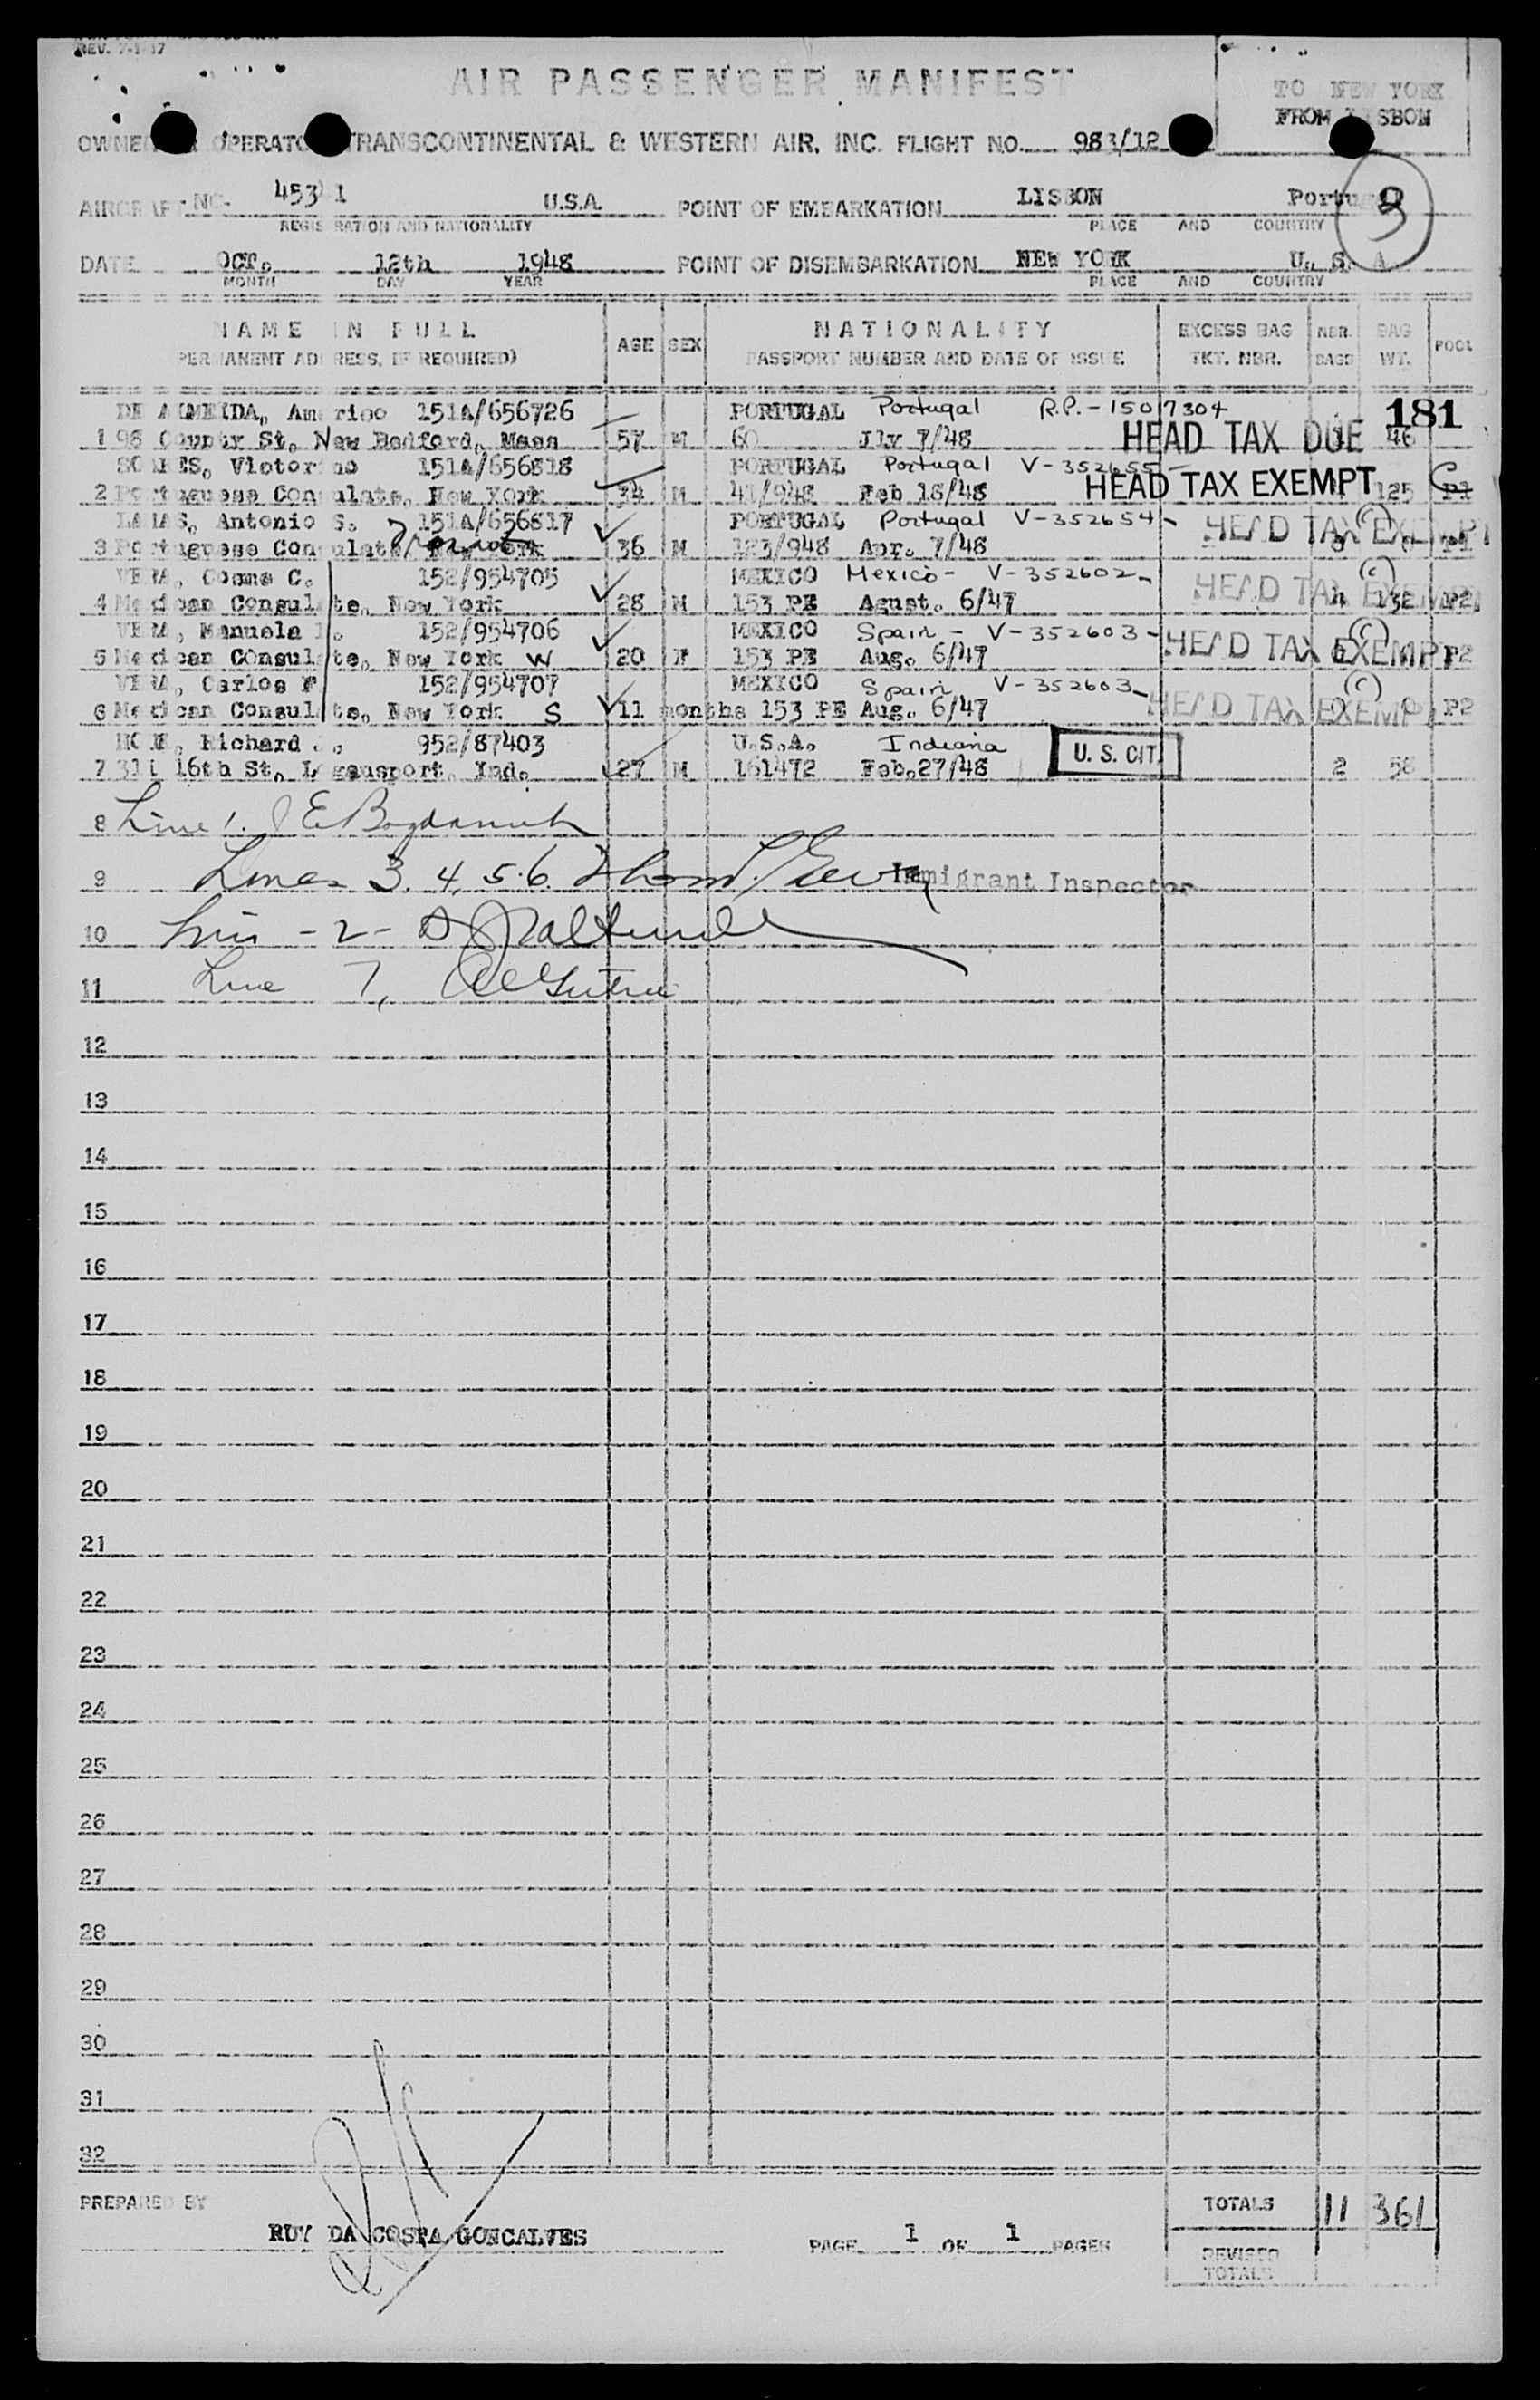 REV. 7-1-47
AIR PASSENGER MANIFEST
TO NEW YORK
FROM LISBON
OWNER OR OPERATOR TRANSCONTINENTAL & WESTERN AIR, INC. FLIGHT NO. 983/12
AIRCRAFT NO. U.S.A. POINT OF EMBARKATION LISBON Portugal
REGISTRATION AND NATIONALITY PLACE AND COUNTRY
DATE OCT. 12th 1948 POINT OF DISEMBARKATION NEW YORK U. S. A
MONTH DAY YEAR PLACE AND COUNTRY
NAME IN FULL AGE SEX NATIONALITY EXCESS BAG NBR. BAG POOL
(PERMANENT ADDRESS, IF REQUIRED) PASSPORT NUMBER AND DATE OF ISSUE TKT. NBR. BAGS WT.
DE ALMEIDA, Americo 151A/656726 PORTUGAL Portugal R.P.-1507304 181
1 98 County St, New Bedford, Mass 57 M 60 Jly 7/48 HEAD TAX DUE 46
SOARES, Victorino 151A/656818 PORTUGAL Portugal V-352655-
2 Portuguese Consulate, New York 34 M 41/948 Feb 18/48 HEAD TAX EXEMPT 125 P1 C
Antonio S. 151A/656817 PORTUGAL Portugal V-352654-
3 Portuguese Consulate, New York 36 M 123/948 Apr. 7/48 HEAD TAX EXEMPT (c) P1
VERA, Cosme C. 152/954705 MEXICO Mexico- V-352602-
4 Mexican Consulate, New York 28 M 153 PE Agust. 6/47 HEAD TAX EXEMPT (c) 4 132 P2
VERA, Manuela 152/954706 MEXICO Spain - V-352603-
5 Mexican COnsulate, New York W 20 F 153 PE Aug. 6/47 HEAD TAX EXEMPT (c) P2
VERA, Carlos F 152/954707 MEXICO Spain V-352603-
6 Mexican Consulate, New York S 11 months 153 PE Aug. 6/47 HEAD TAX EXEMPT (c) 0 0 P2
Richard 952/87403 U.S.A. Indiana U. S. CIT.
7 16th St, Logansport, Ind. 27 M 161472 Feb.27/48 2 58
8 Line 1. J E Bogdanich
9 Lines 3. 4. 5. 6. Immigrant Inspector
10 Line - 2 -
11 Line 7,
12
13
14
15
16
17
18
19
20
21
22
23
24
25
26
27
28
29
30
31
32
PREPARED BY TOTALS 11 361
RUY DA COSTA GONCALVES PAGE 1 OF 1 PAGES
REVISED
TOTALS